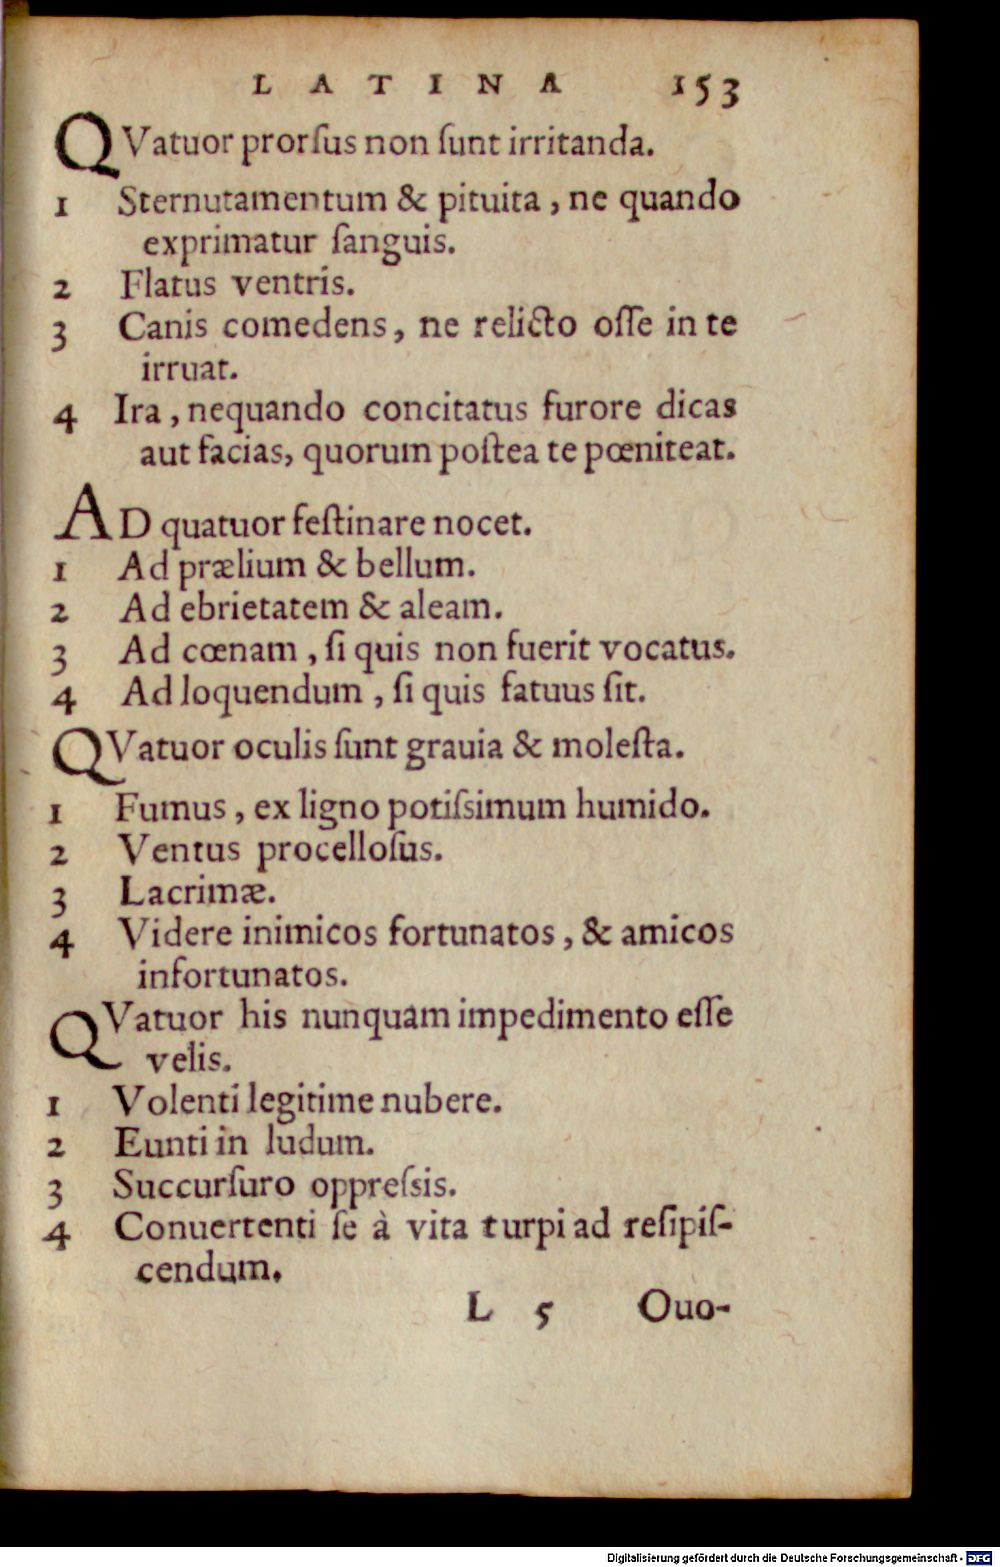 LATINA 153
QVatuor prorſus non ſunt irritanda.
1 Sternutamentum & pituita, ne quando
exprimatur ſanguis.
2 Flatus ventris.
3 Canis comedens, ne relicto oſſe in te
irruat.
4 Ira, nequando concitatus furore dicas
aut facias, quorum poſtea te pœniteat.
AD quatuor feſtinare nocet.
1 Ad prælium & bellum.
2 Ad ebrietatem & aleam.
3 Ad cœnam, ſi quis non fuerit vocatus.
4 Ad loquendum, ſi quis fatuus ſit.
QVatuor oculis ſunt grauia & moleſta.
1 Fumus, ex ligno potiſsimum humido.
2 Ventus procelloſus.
3 Lacrimæ.
4 Videre inimicos fortunatos, & amicos
infortunatos.
QVatuor his nunquam impedimento eſſe
velis.
1 Volenti legitime nubere.
2 Eunti in ludum.
3 Succurſuro oppreſsis.
4 Conuertenti ſe à vita turpi ad reſipiſ-
cendum.
L 5 Quo-
Digitalisierung gefördert durch die Deutsche Forschungsgemeinschaft - DFG